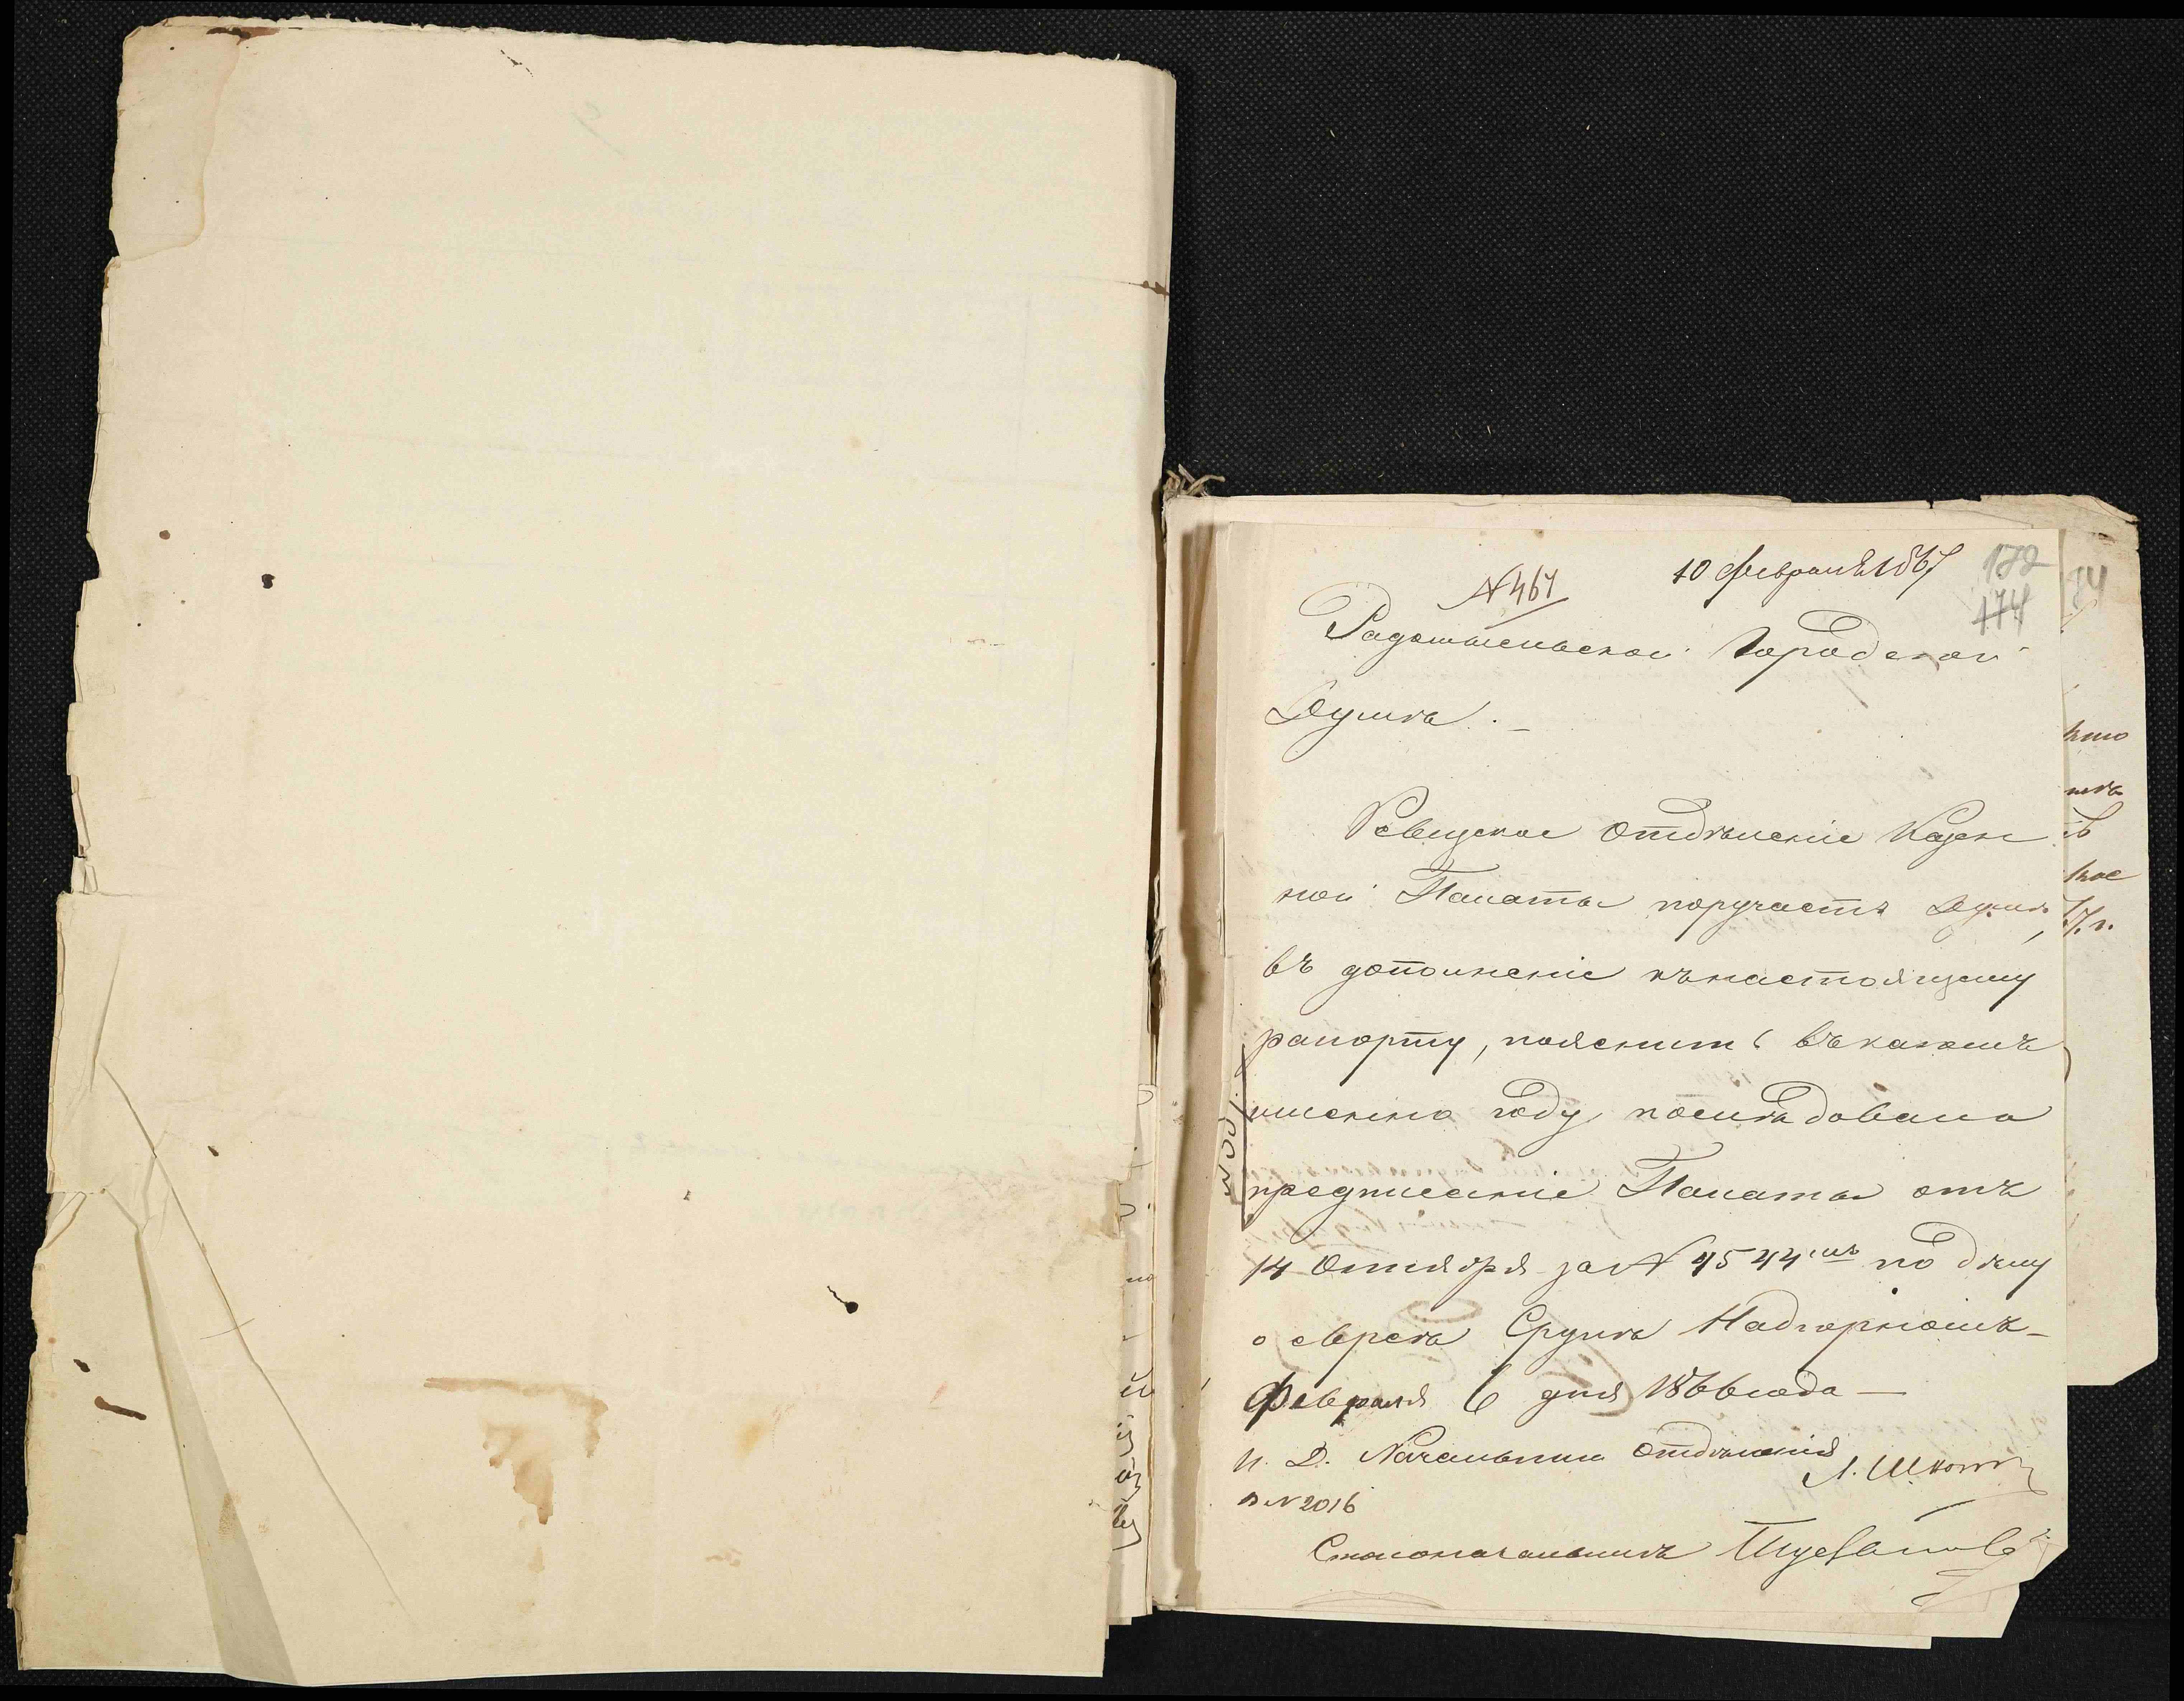 10 февраля 1867
172
174
№ 467
Радомысльской Городской
Думѣ.
Ревизское Отдѣленіе Казен
ной Палаты поручаетъ Думѣ,
въ дополненіе къ настоящему
рапорту, пояснить въ какомъ
именно году послѣдовало
предписаніе Палаты отъ
14 Октября за № 4544ᵐᵗ по дѣлу
о евреѣ Сруль Надгорномъ
Февраля 6 дня 1866 года
И. Д. Начальника Отдѣленія
№ 2016
Столоначальникъ